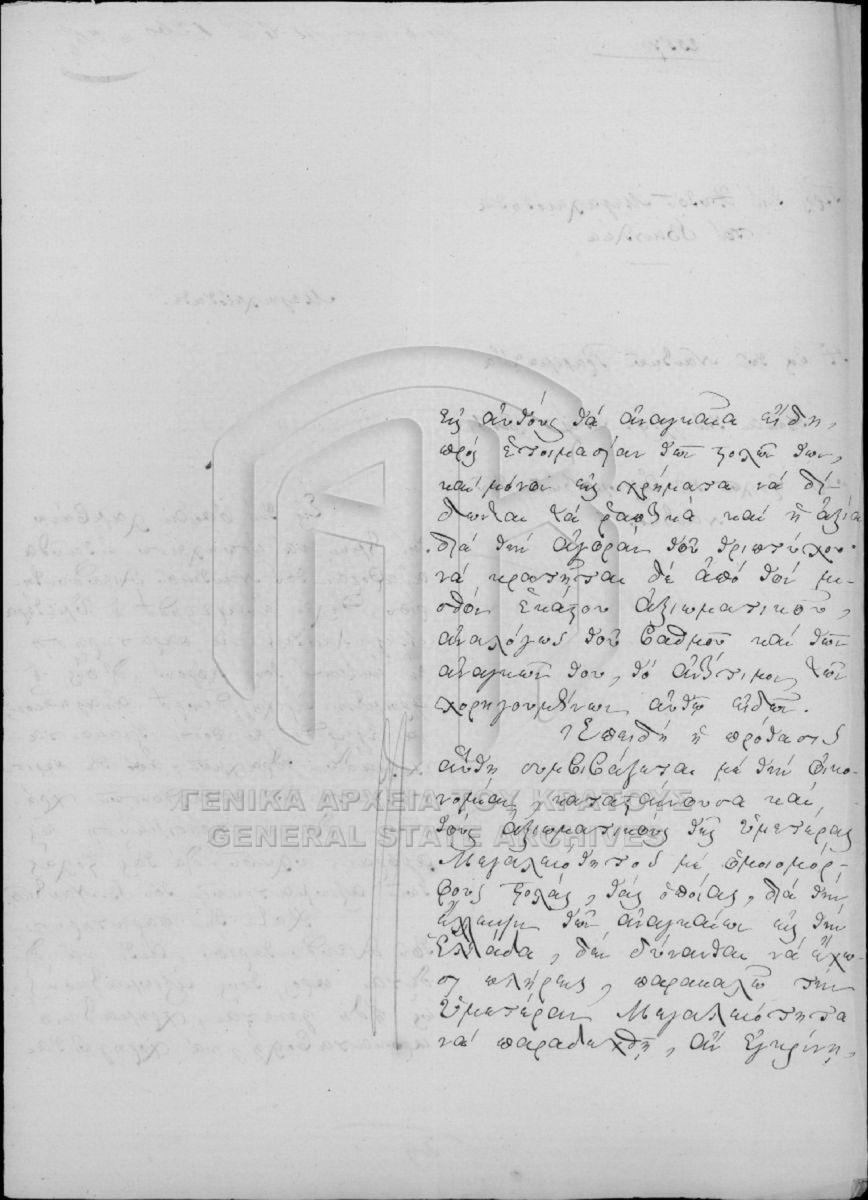 εἰς αὐτούς τά ἀναγκαῖα εἴδη,
πρός ἑτοιμασίαν τῶν στολῶν των,
καί μόνον εἰς χρήματα νά δί-
δωνται τά ῥαπτικά καί ἡ ἀξία
διά τήν ἀγοράν τοῦ τριπτύχου·
νά κρατῆται δέ ἀπό τόν μι-
σθόν ἑκάστου ἀξιωματικοῦ,
ἀναλόγως τοῦ βαθμοῦ καί τῶν
ἀναγκῶν του, τό ἀντίτιμον τῶν
χορηγουμένων αὐτῷ εἰδῶν.
Ἐπειδή ἡ πρότασις
αὕτη συμβιβάζεται μέ τήν οἰκο-
νομίαν, κατασταίνουσα καί
τούς ἀξιωματικούς τῆς Ὑμετέρας
Μεγαλειότητος μέ ὁμοιομόρ-
φους στολάς, τάς ὁποίας, διά τήν
ἔλλειψιν τῶν ἀναγκαίων εἰς τήν
Ἑλλάδα, δέν δύνανται νά ἔχω-
σι πλήρεις, παρακαλῶ τήν
Ὑμετέραν Μεγαλειότητα
νά παραδεχθῇ, ἄν ἐγκρίνῃ,
ΓΕΝΙΚΑ ΑΡΧΕΙΑ ΤΟΥ ΚΡΑΤΟΥΣ
GENERAL STATE ARCHIVES